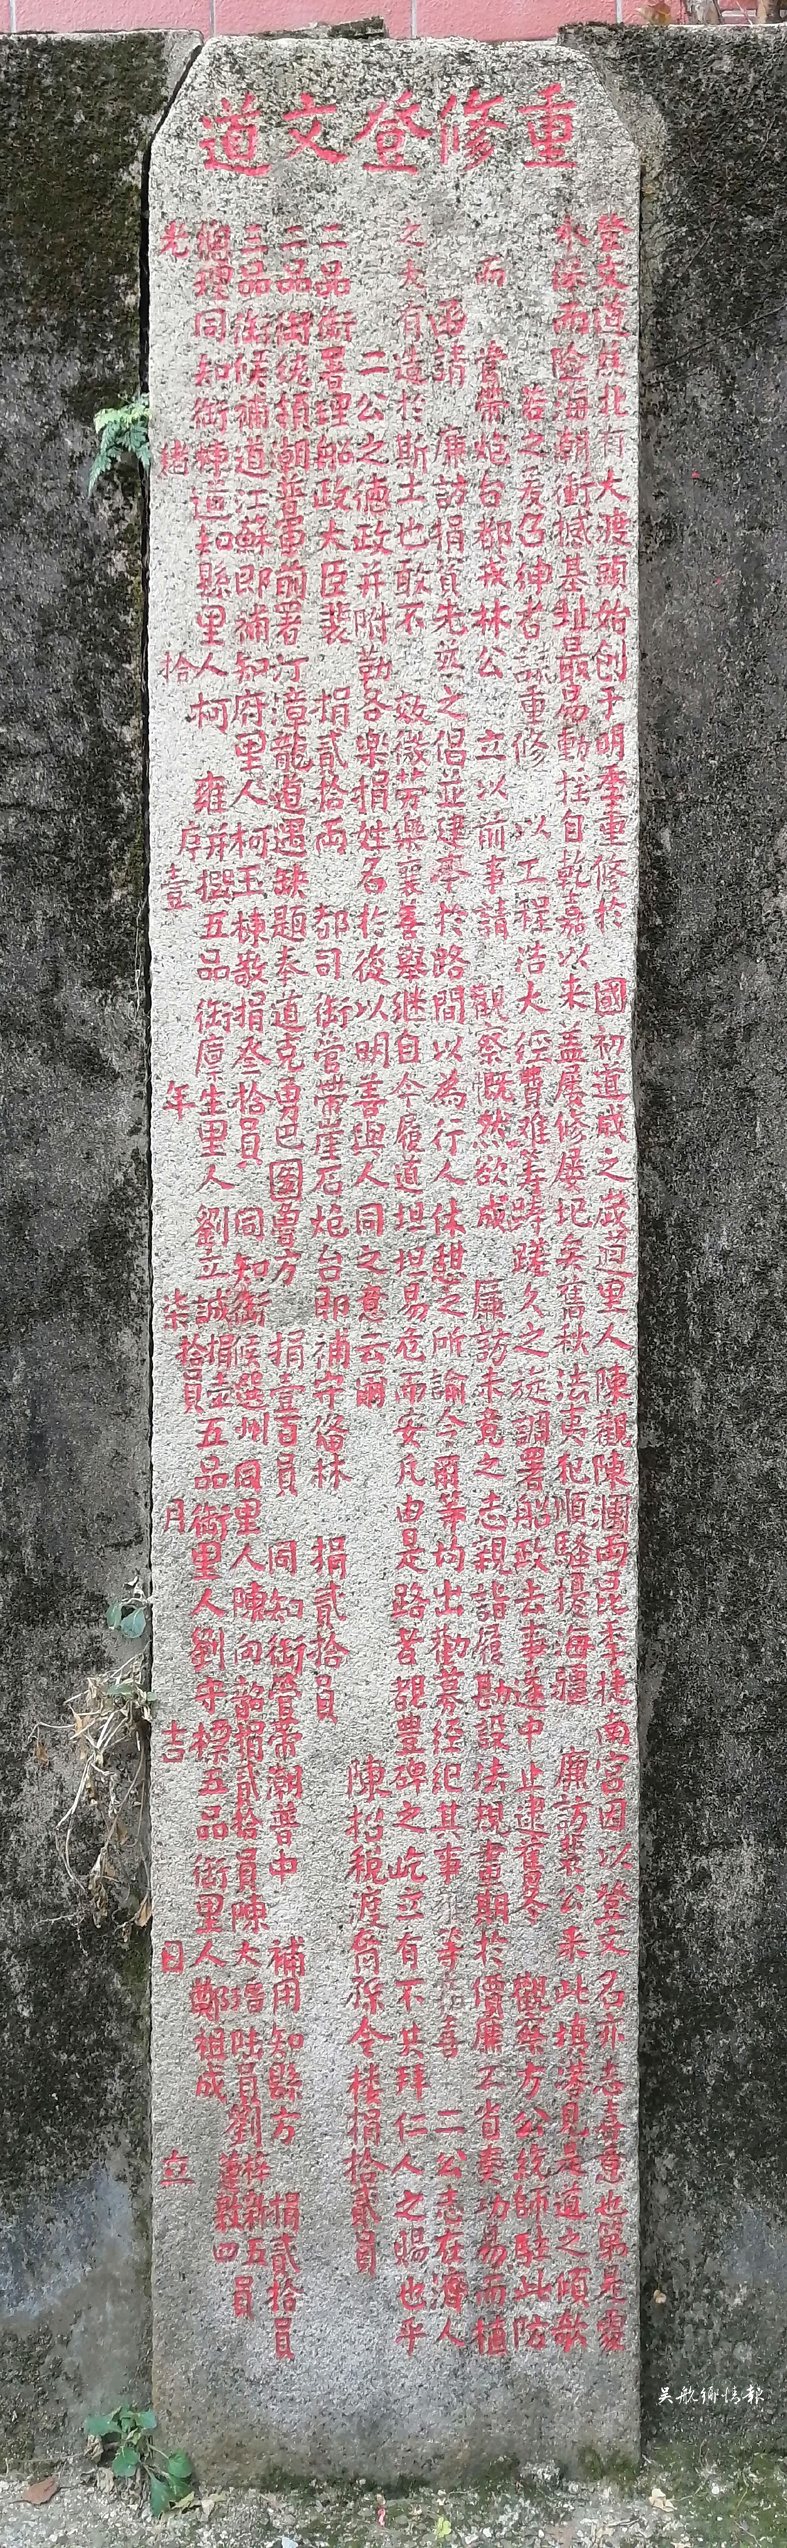 重修登文道
登文道焦北有大渡頭始创于明季重修於 國初道咸之歲適里人陳觀陳瀾兩昆季捷南宮因以登文名亦志喜意也第是處
水深而险海潮衝撼基址最易動摇自乾嘉以来盖屡修屡圯矣舊秋法夷犯順騷擾海疆 廉訪裴公来此填港見是道之傾欹
若之爰召紳耆議重修 以工程浩大經費难筹躊蹉久之旋調署船政去事遂中止逮舊冬 觀察方公統師駐此防
而 管帶炮台都戎林公 立以前事請 觀察慨然欲成 廉訪未竟之志親詣履勘設法規畫期於價廉工省奏功易而植
函請 廉訪捐資先為之倡並建亭於路間以為行人休憩之所諭令爾等均出勸募经纪其事 等 喜 二公志在濟人
之大有造於斯土也敢不 效微劳樂襄善舉继自今履道坦坦易危而安凡由是路者覩豊碑之屹立有不共拜仁人之賜也乎
二公之德政并附勒各樂捐姓名於後以明善與人同之意云爾 陳招税渡裔孫令楼捐拾貳員
二品銜署理船政大臣裴 捐貳拾两 都司銜管带崖石炮台即補守俻林 捐貳拾員
二品銜統領潮普軍前署汀漳龍道遇缺題奉道克勇巴圖魯方 捐壹百員 同知銜管帶潮普中 補用知縣方 捐貳拾員
三品銜候補道江蘇即補知府里人柯玉棟敬捐叁拾員 同知銜候選州同里人陳向韶捐貳拾員陳大 捐陆員劉梓新五員
總理同知銜 道知縣里人柯 雍序并撰五品銜廪生里人劉立誠捐壹拾員五品銜里人劉守樑五品銜里人鄭祖成 蘧敷四
光緒拾壹年柒月吉日立
吴航鄉情報